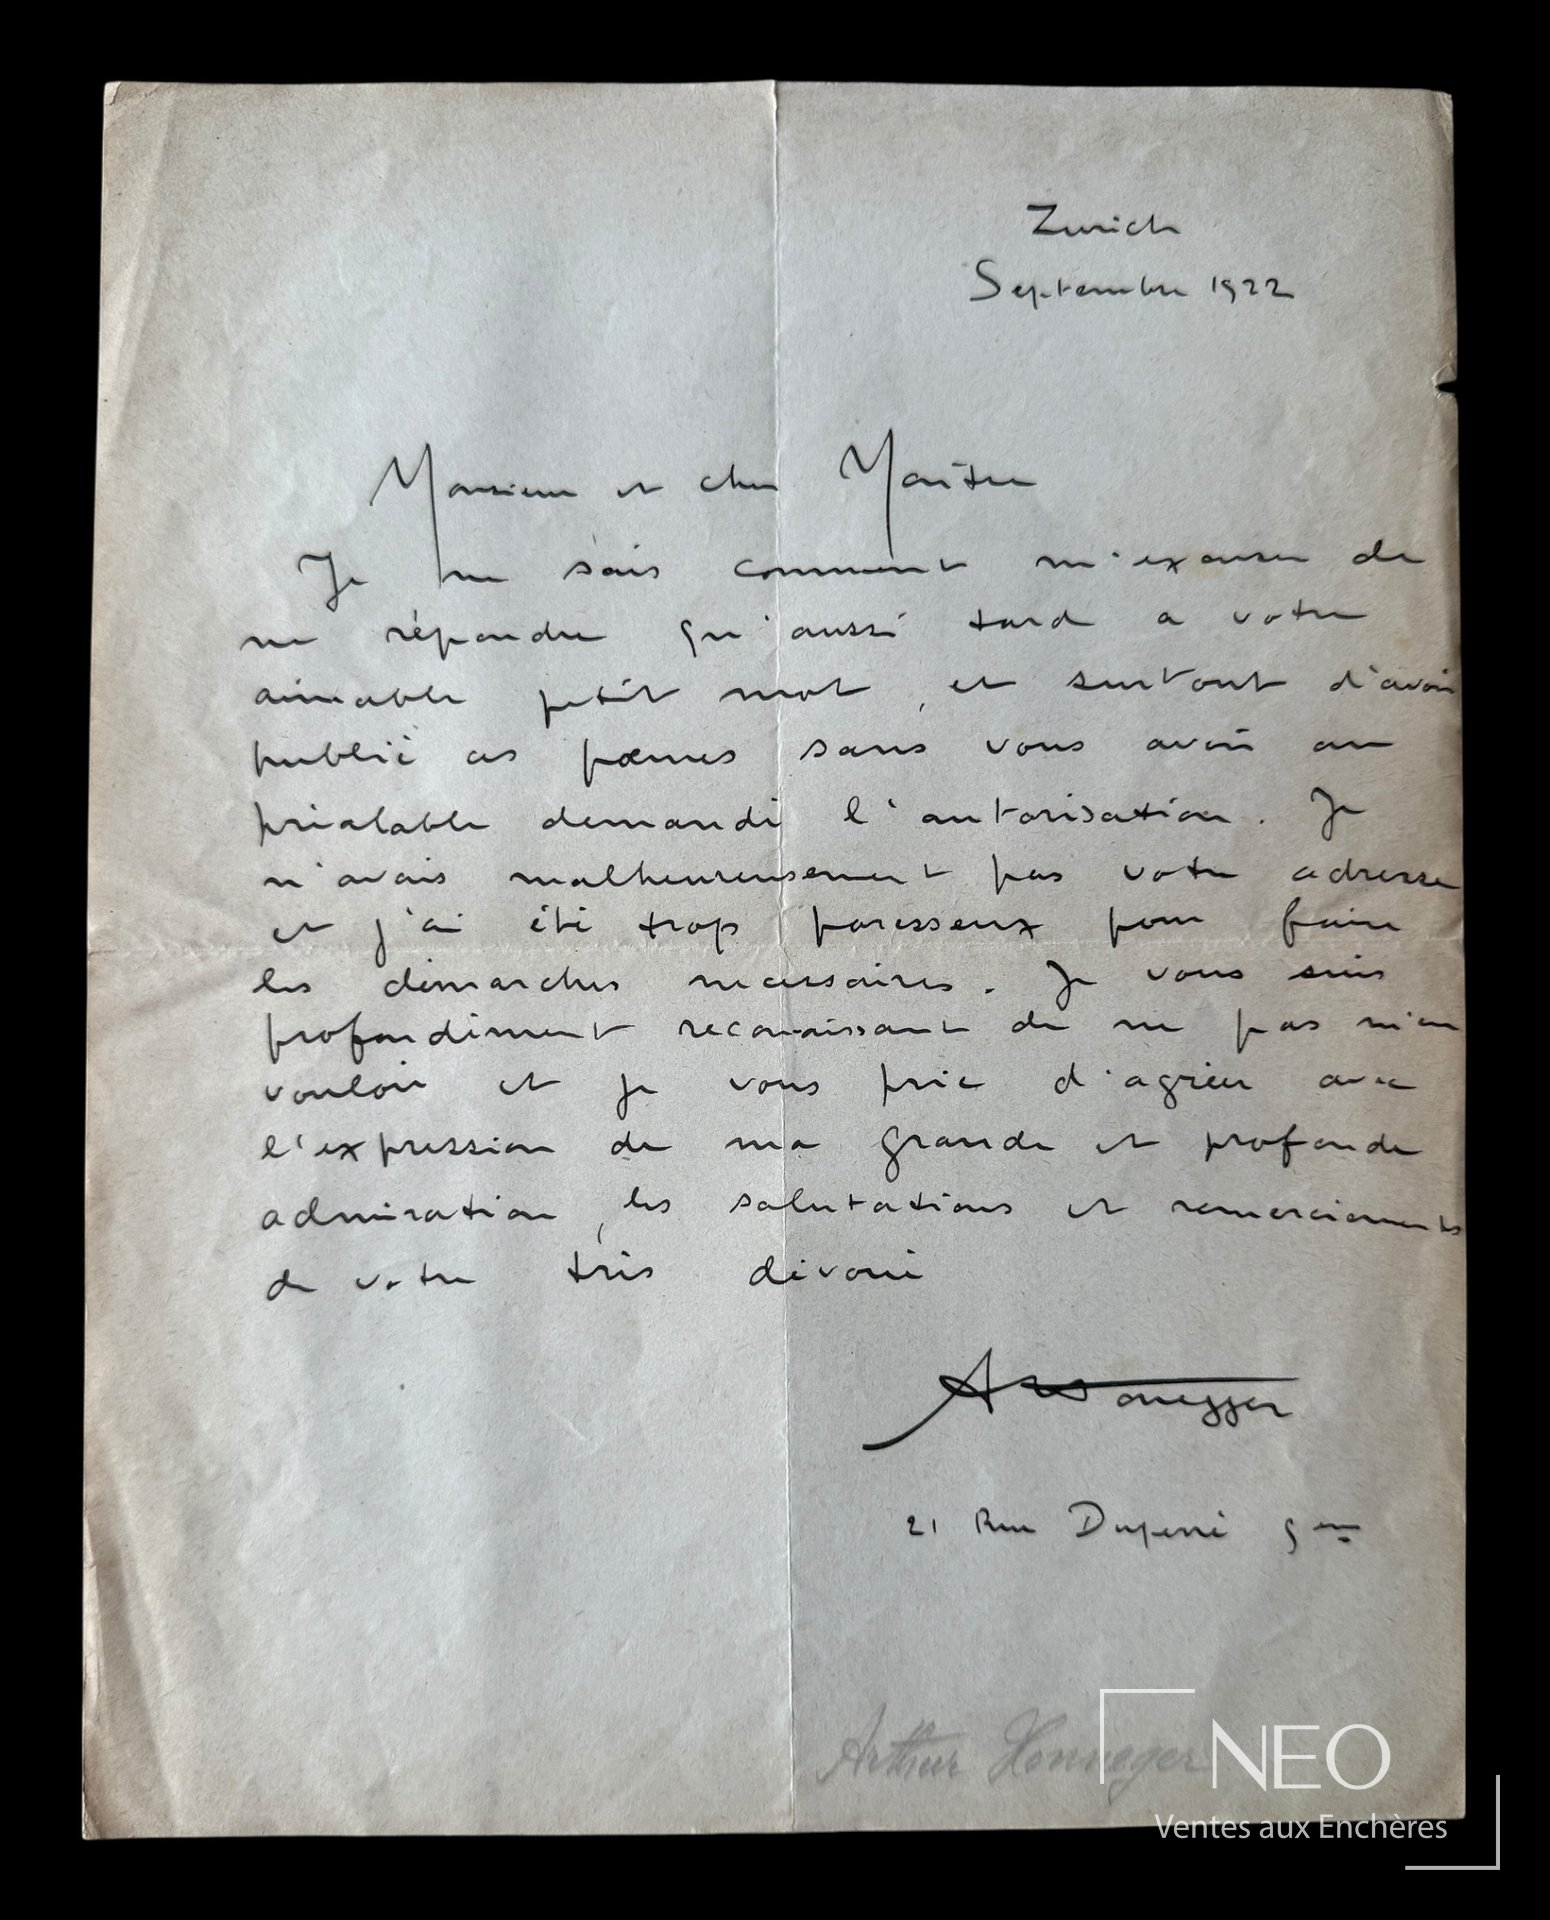 Zurich
Septembre 1922
Monsieur et cher Maître
Je ne sais comment m'excuser de
ne répondre qu'aussi tard a votre
aimable petit mot, et surtout d'avoir
publié ces poemes sans vous avoir au
préalable demandé l'autorisation. Je
n'avais malheureusement pas votre adresse
et j'ai été trop paresseux pour faire
les démarches necessaires. Je vous suis
profondément reconaissant de ne pas m'en
vouloir et je vous prie d'agréer avec
l'expression de ma grande et profonde
admiration, les salutations et remerciements
de votre très dévoué
A Honegger
21 Rue Duperré 9em
Arthur Honneger
NEO
Ventes aux Enchères